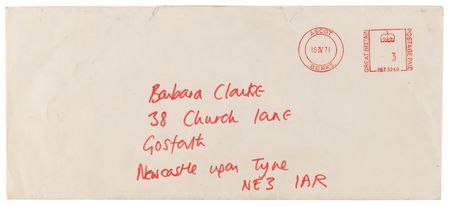 ASCOT
15 IV 71
BERKS
GREAT BRITAIN
POSTAGE PAID
3
P.B.T. 3260
Barbara Clarke
38 Church Lane
Gosforth
Newcastle upon Tyne
NE3 1AR